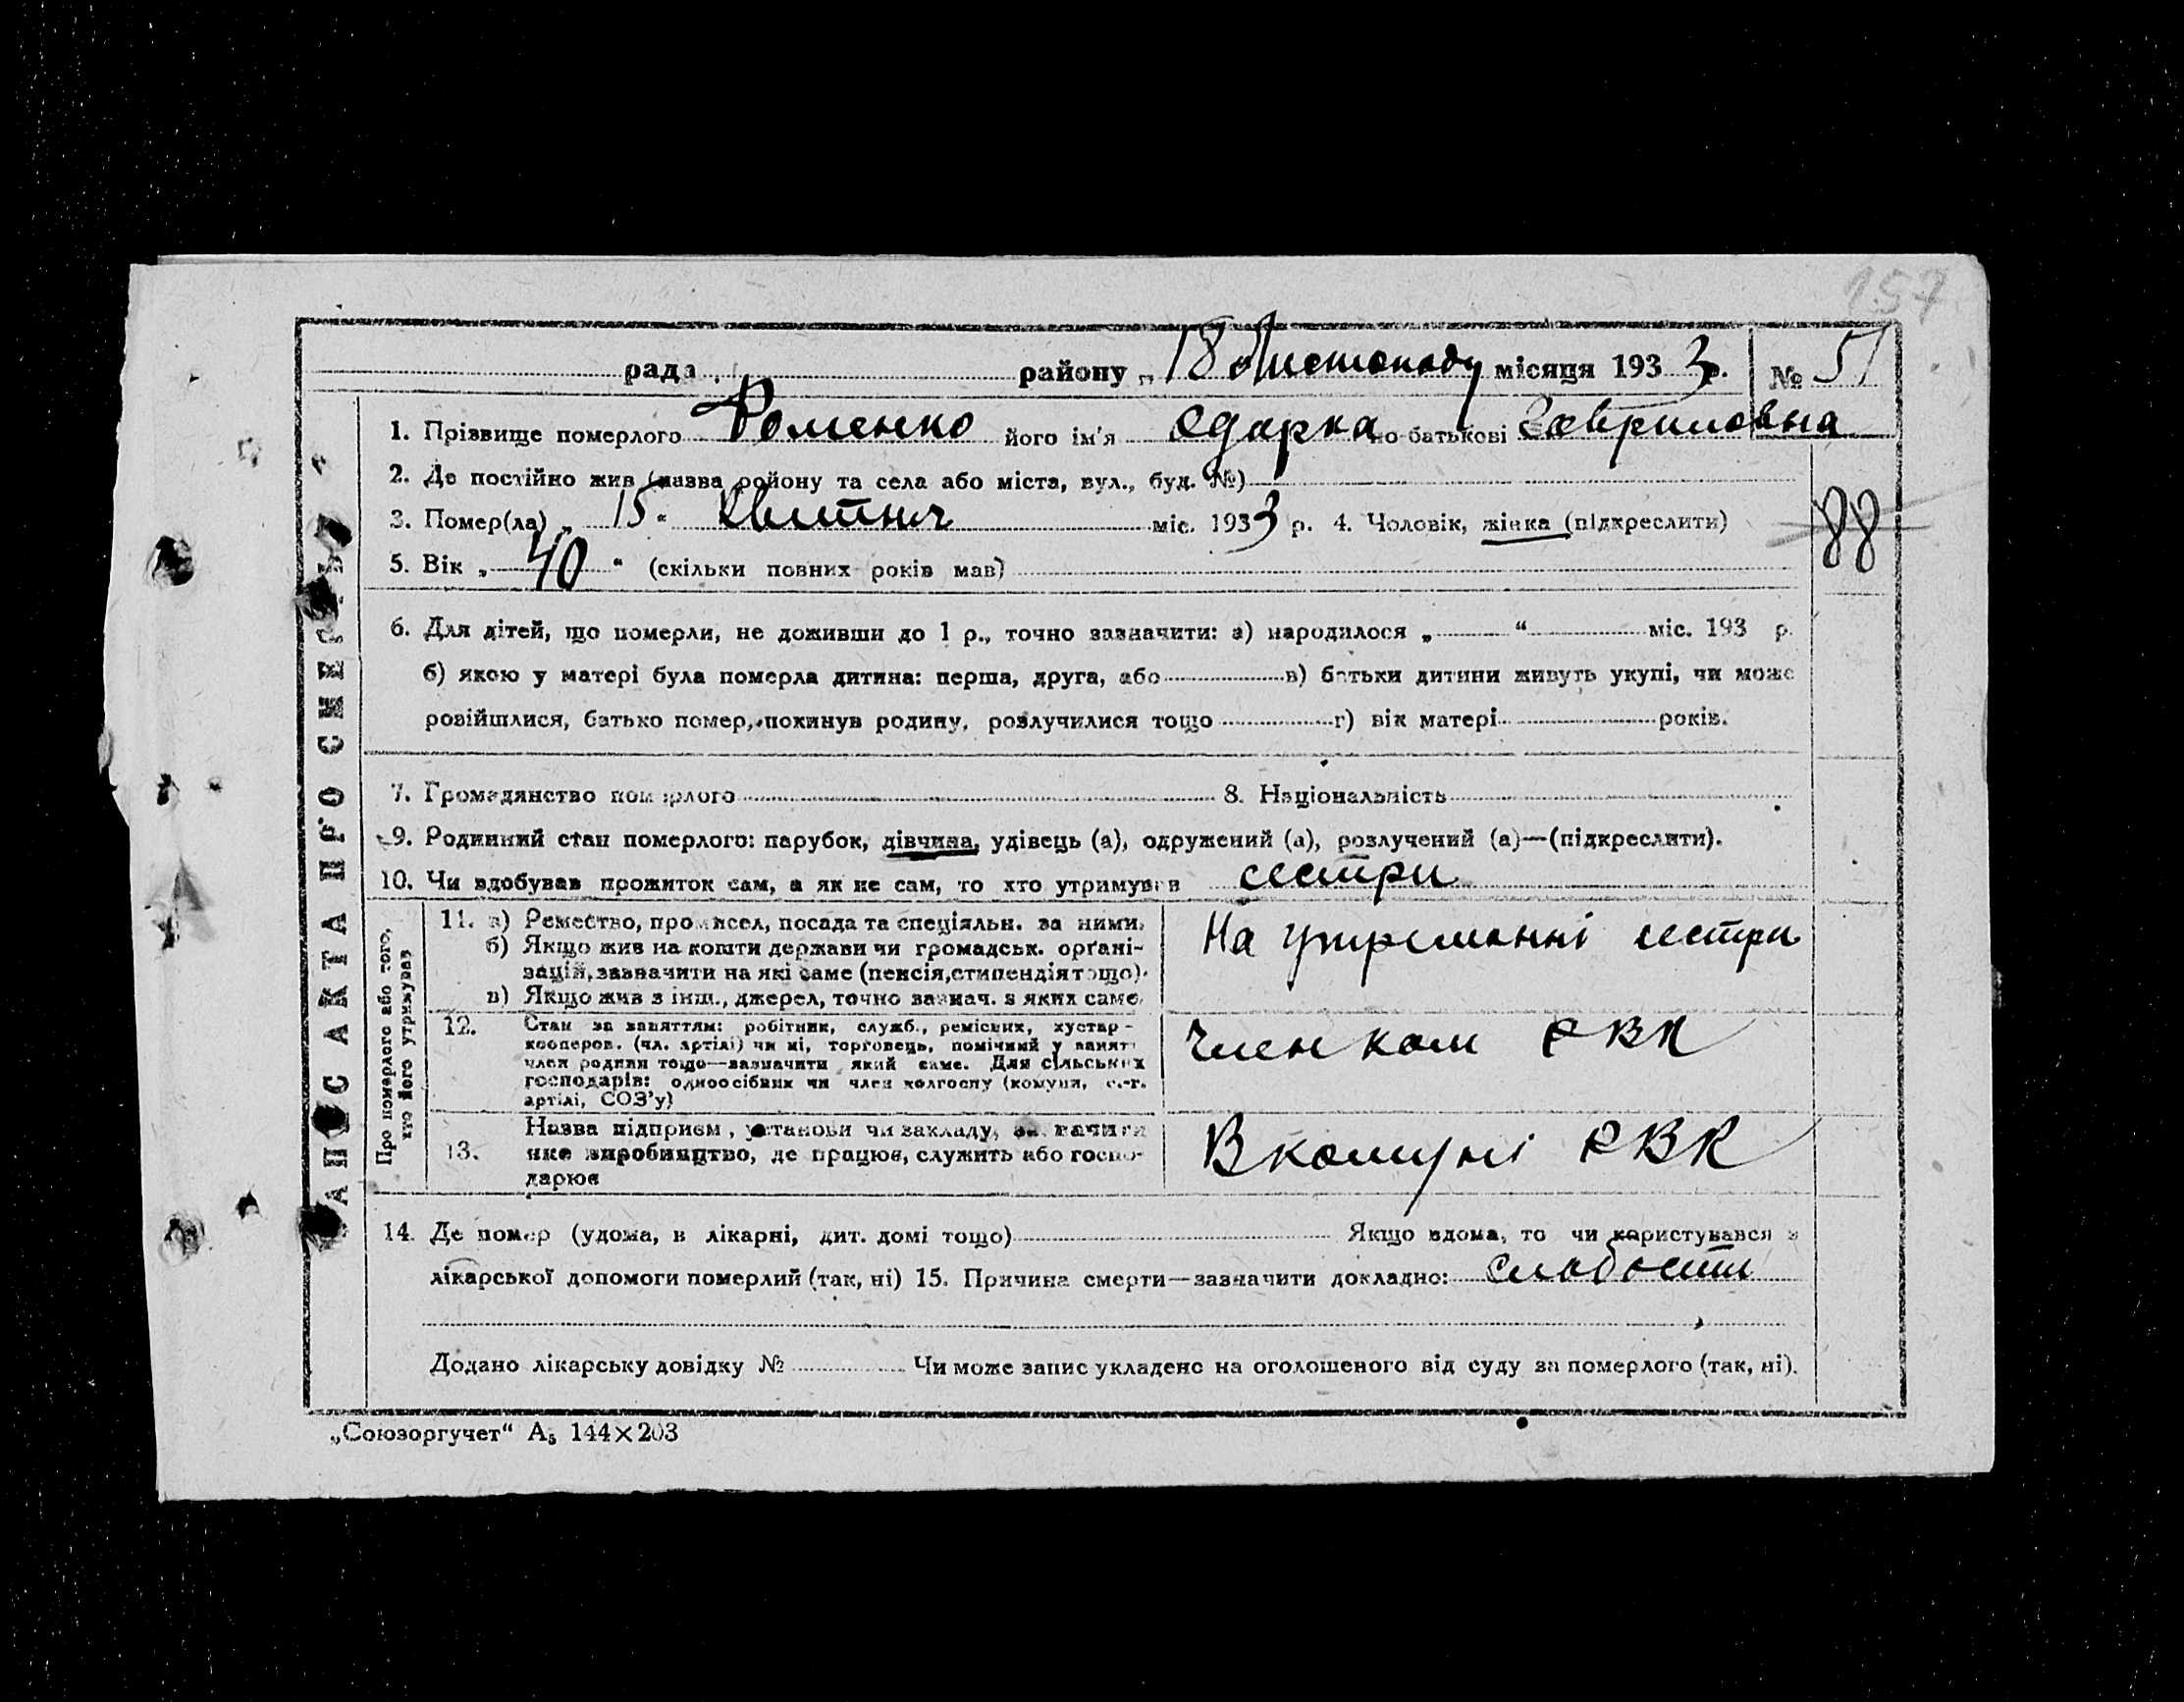 157
рада району „ 18 " Листопаду місяця 1933 р. № 51
1. Прізвище померлого Фоменко його ім'я Одарка по батькові Гавриловна
2. Де постійно жив (назва району та села або міста, вул., буд. №)
3. Помер(ла) „ 15 " Квітня міс. 1933 р. 4. Чоловік, жінка (підкреслити)
88
5. Вік „ 40 " (скільки повних років мав)
6. Для дітей, що померли, не доживши до 1 р., точно зазначити: а) народилося „ " міс. 193 р.
б) якою у матері була померла дитина: перша, друга, або в) батьки дитини живуть укупі, чи може
розійшлися, батько помер, покинув родину, розлучилися тощо г) вік матері років.
7. Громадянство померлого 8. Національність
9. Родинний стан померлого: парубок, дівчина, удівець (а), одружений (а), розлучений (а)—(підкреслити).
10. Чи здобував прожиток сам, а як не сам, то хто утримував сестри
ЗАПИС АКТА ПРО СМЕРТЬ
Про померлого або того,
хто його утримував
11. а) Ремество, промисел, посада та спеціяльн. за ними.
б) Якщо жив на кошти держави чи громадськ. орґані-
зацій, зазначити на які саме (пенсія, стипендія тощо).
в) Якщо жив з інш., джерел, точно зазнач. з яких саме.
На утриманні сестри
12. Стан за заняттям: робітник, служб., ремісник, кустар-
кооперов. (чл. артілі) чи ні, торговець, помічний у занятт.
член родини тощо—зазначити який саме. Для сільських
господарів: одноосібник чи член колгоспу (комуни, с.-г.
артілі, СОЗ'у)
Член ком РВК
13. Назва підприєм., установи чи закладу, зазначити
яке виробництво, де працює, служить або госпо-
дарює
В комуні РВК
14. Де помер (удома, в лікарні, дит. домі тощо) Якщо вдома, то чи користувався з
лікарської допомоги померлий (так, ні) 15. Причина смерти—зазначити докладно: Слабости
Додано лікарську довідку № Чи може запис укладено на оголошеного від суду за померлого (так, ні).
„Союзоргучет" А₅ 144×203